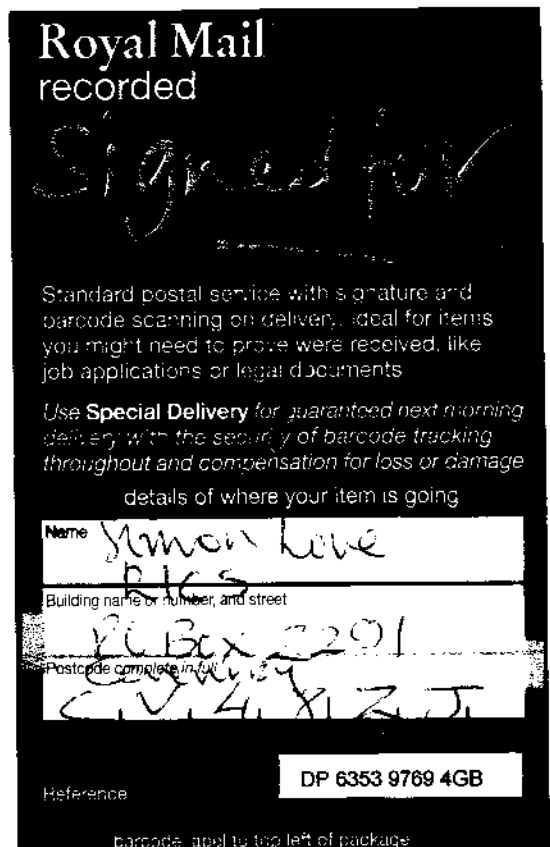 Royal Mail
recorded
Signed for
Standard postal service with signature and
barcode scanning on delivery. Ideal for items
you might need to prove were received, like
job applications or legal documents
Use Special Delivery for guaranteed next morning
delivery with the security of barcode tracking
throughout and compensation for loss or damage
details of where your item is going
Name Simon Love
RICS
Building name or number, and street
PO Box 2291
Postcode complete in full
Coventry
C V 4 8 Z J
DP 6353 9769 4GB
Reference
barcode label to top left of package